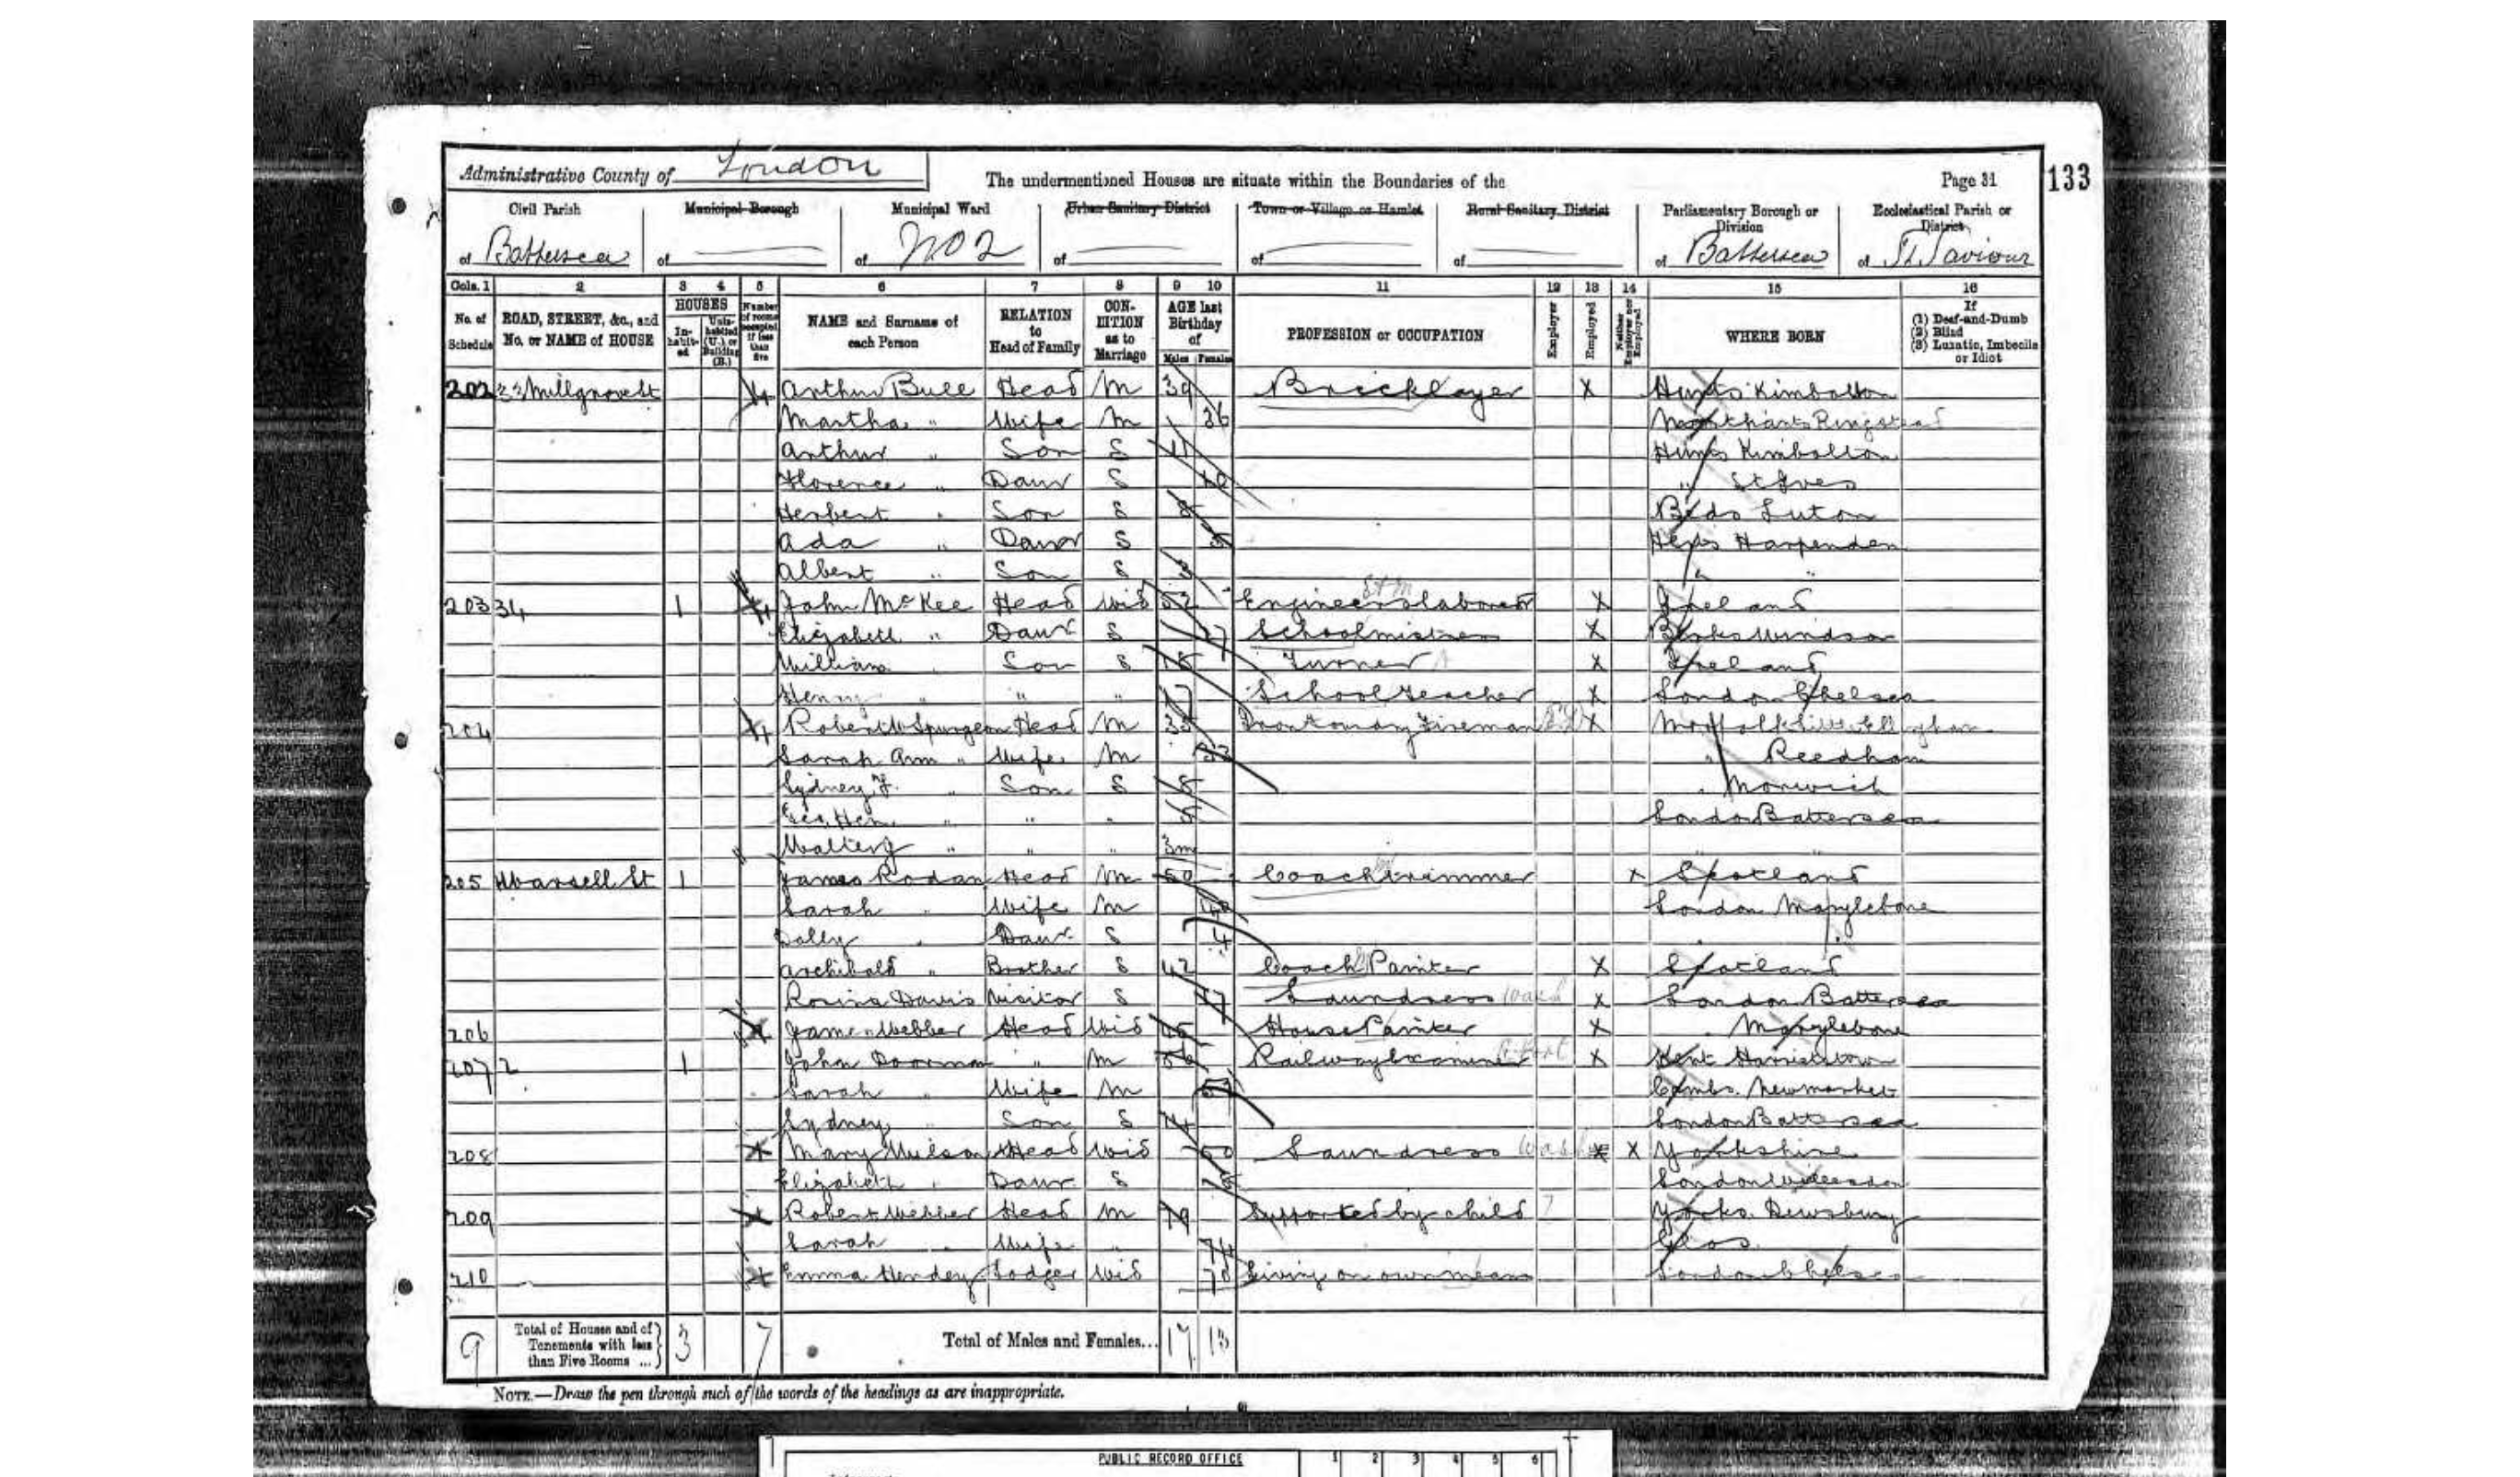 Administrative County of London
The undermentioned Houses are situate within the Boundaries of the
Page 31
133
Civil Parish Municipal Borough Municipal Ward Urban Sanitary District Town or Village or Hamlet Rural Sanitary District Parliamentary Borough or Division Ecclesiastical Parish or District
of Battersea of of No 2 of of of of Battersea of St Saviour
Cols. 1 2 3 4 5 6 7 8 9 10 11 12 13 14 15 16
No. of Schedule ROAD, STREET, &c., and No. or NAME of HOUSE HOUSES Inhabited Uninhabited (U.) or Building (B.) Number of rooms occupied if less than five NAME and Surname of each Person RELATION to Head of Family CONDITION as to Marriage AGE last Birthday of Males Females PROFESSION or OCCUPATION Employer Employed Neither Employer nor Employed WHERE BORN If (1) Deaf-and-Dumb (2) Blind (3) Lunatic, Imbecile or Idiot
202 33 Millgrove St 4 Arthur Bull Head M 39 Bricklayer X Hunts Kimbolton
Martha " Wife M 36 Northants Ringstead
Arthur " Son S 11 Hunts Kimbolton
Florence " Daur S 10 " St Ives
Herbert " Son S 8 Beds Luton
Ada " Daur S 5 Herts Harpenden
Albert " Son S 3 " "
203 34 1 4 John McKee Head Wid 52 Engineers labourer X Ireland
Elizabeth " Daur S 27 Schoolmistress X Berks Windsor
William Son S 18 Turner X Ireland
Henry " " " 17 School teacher X London Chelsea
204 4 Robert W Spurgeon Head M 33 Fireman X Norfolk
Sarah Ann " Wife M 33 " Reedham
Sydney F. " Son S 8 " Norwich
Geo. Hen. " " " 5 London Battersea
Walter " " " 3m " "
205 1 James Rodan Head M 50 Coach trimmer x Scotland
Sarah " Wife M London Marylebone
Dolly " Daur S 4 " "
Archibald " Brother S 42 Coach Painter X Scotland
Rosina Davis Visitor S 17 Laundress X London Battersea
206 James Webber Head Wid 45 House Painter X " Marylebone
207 2 1 John Doorman " M 56 Railway Examiner X Kent
Sarah " Wife M Cambs. Newmarket
Sydney " Son S 14 London Battersea
208 Mary Wilson Head Wid 50 Laundress X Yorkshire
Elizabeth " Daur S London
209 Robert Webber Head M 79 Supported by child Yorks. Dewsbury
Sarah " Wife " 74 Glos.
210 Emma Hendey Lodger Wid 70 Living on own means London Chelsea
9 Total of Houses and of Tenements with less than Five Rooms ... 3 7 Total of Males and Females... 17 13
NOTE.—Draw the pen through such of the words of the headings as are inappropriate.
PUBLIC RECORD OFFICE 1 2 3 4 5 6